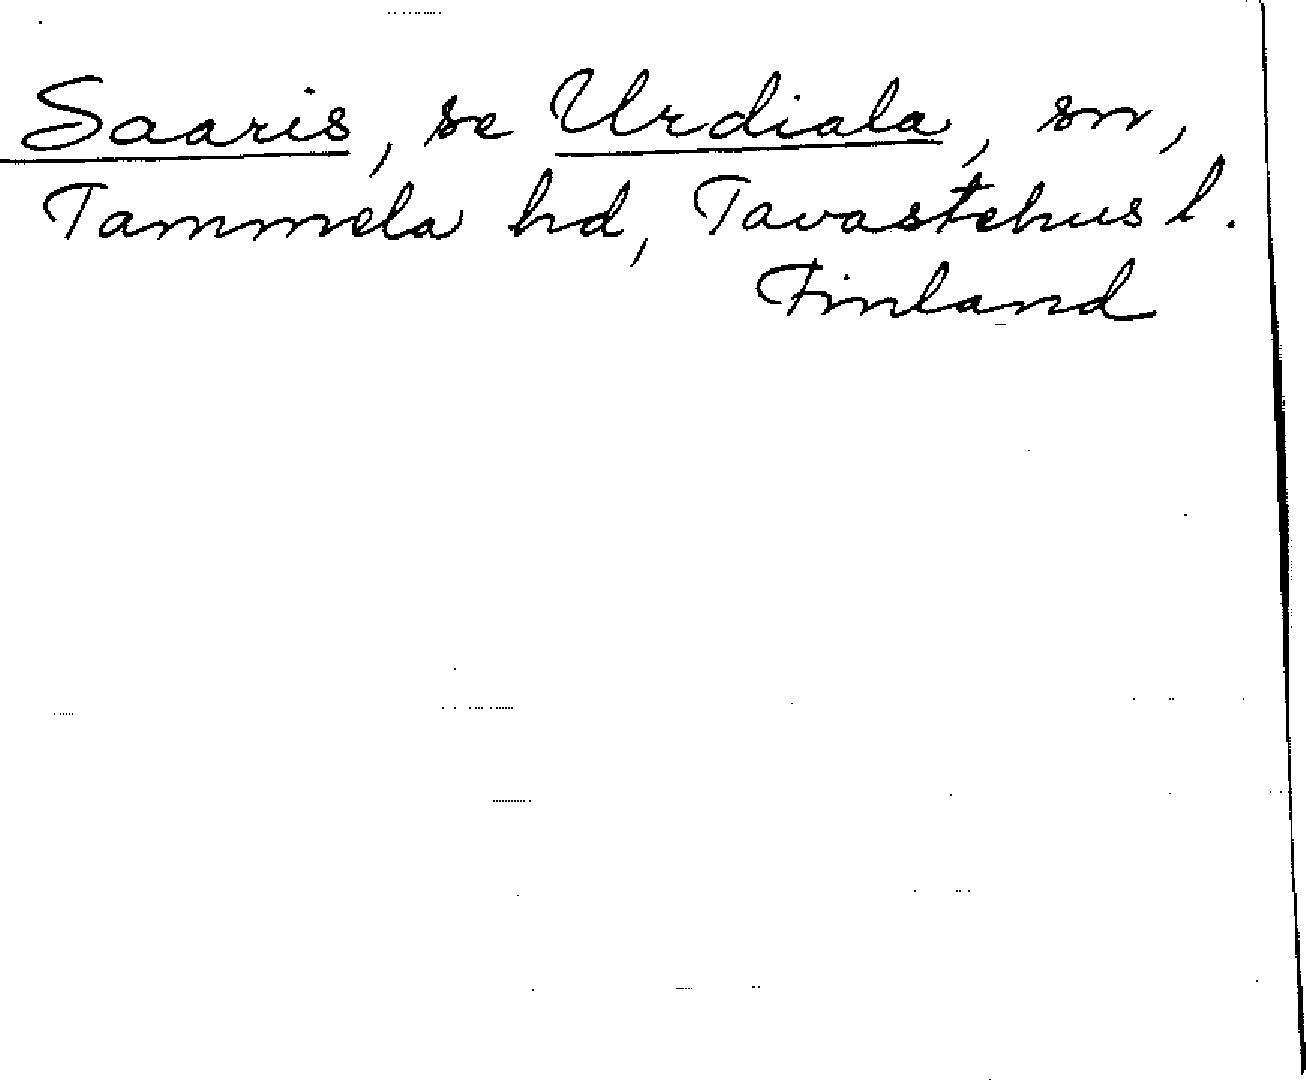 Saaris, se Urdiala, sn,
Tammela hd, Tavastehus l.
Finland